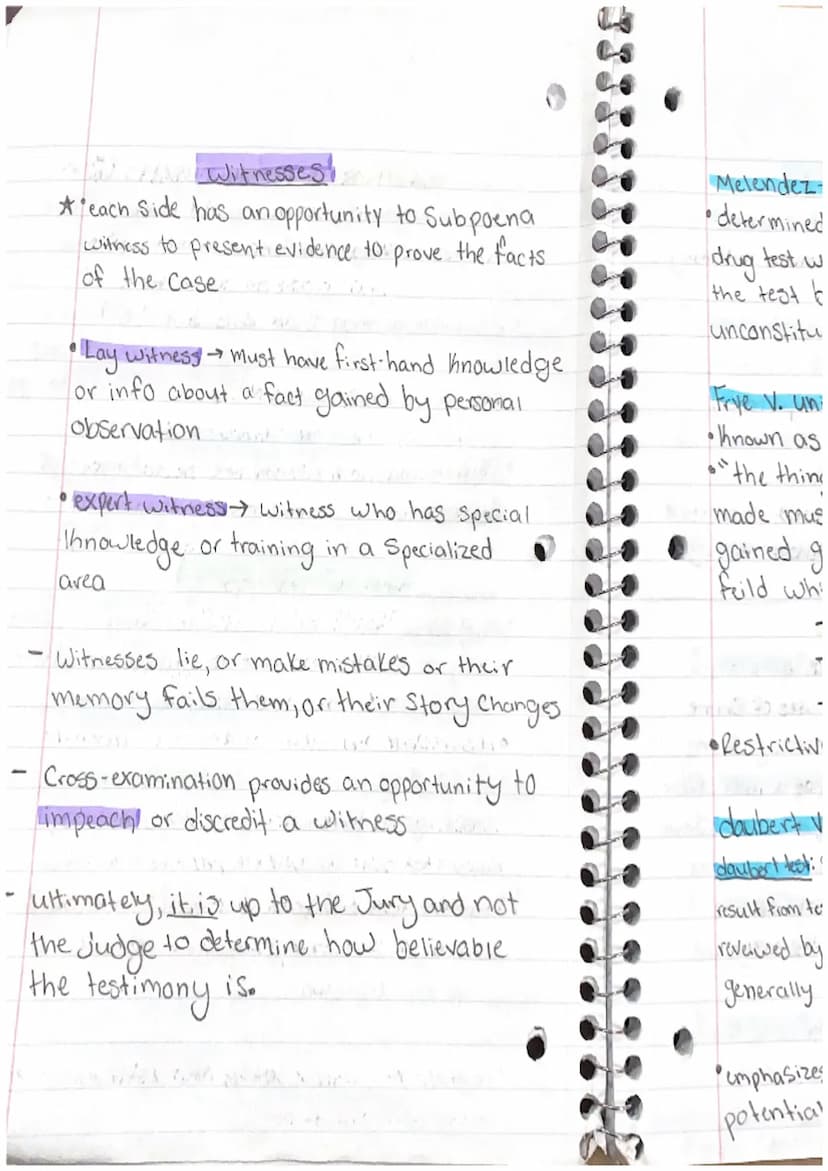 Witnesses
★ •each side has an opportunity to Subpoena
witness to present evidence to prove the facts
of the case
• Lay witness → must have first-hand knowledge
or info about a fact gained by personal
observation
• expert witness → witness who has special
knowledge or training in a specialized
area
- Witnesses lie, or make mistakes or their
memory fails them, or their story changes
- Cross-examination provides an opportunity to
impeach or discredit a witness
- ultimately, it is up to the Jury and not
the judge to determine how believable
the testimony is.
Melendez-
• determined
drug test w
the test b
unconstitu
Frye V. un
• known as
• "the thing
made mus
gained g
feild whi
-
-
-
• Restrictiv
daubert v
daubert test:
result from te
reveiwed by
generally
• emphasizes
potential